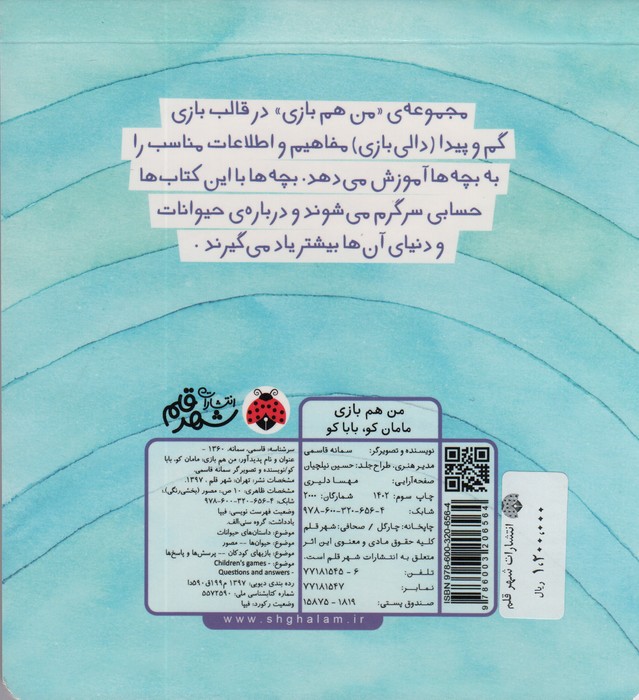 مجموعه‌ی «من هم بازی» در قالب بازی
گم و پیدا (دالی بازی) مفاهیم و اطلاعات مناسب را
به بچه‌ها آموزش می‌دهد. بچه‌ها با این کتاب‌ها
حسابی سرگرم می‌شوند و درباره‌ی حیوانات
و دنیای آن‌ها بیشتر یاد می‌گیرند.
انتشارات
شهر قلم
من هم بازی
مامان کو، بابا کو
نویسنده و تصویرگر: سمانه قاسمی
مدیر هنری، طراح جلد: حسین نیلچیان
صفحه‌آرایی: مهسا دلیری
چاپ سوم: ۱۴۰۲ شمارگان: ۲۰۰۰
شابک: ۹۷۸-۶۰۰-۳۲۰-۶۵۶-۴
چاپخانه: چارگل / صحافی: شهر قلم
کلیه حقوق مادی و معنوی این اثر
متعلق به انتشارات شهر قلم است.
تلفن: ۶ - ۷۷۱۸۱۵۴۵
نمابر: ۷۷۱۸۱۵۴۷
صندوق پستی: ۱۸۱۹ - ۱۵۸۷۵
سرشناسه: قاسمی، سمانه، ۱۳۶۰ -
عنوان و نام پدیدآور: من هم بازی، مامان کو، بابا
کو/نویسنده و تصویرگر سمانه قاسمی.
مشخصات نشر: تهران: شهر قلم، ۱۳۹۷.
مشخصات ظاهری: ۱۰ ص: مصور (بخشی رنگی).
شابک: ۹۷۸-۶۰۰-۳۲۰-۶۵۶-۴
وضعیت فهرست نویسی: فیپا
یادداشت: گروه سنی:الف.
موضوع: داستان‌های حیوانات
موضوع: حیوان‌ها -- مصور
موضوع: بازیهای کودکان -- پرسش‌ها و پاسخ‌ها
موضوع: - Children's games
Questions and answers -
رده بندی دیویی: ۱۳۹۷ م۱۹۹ق ۱۵۹۰
شماره کتابشناسی ملی: ۵۵۷۲۵۹۰
وضعیت رکورد: فیپا
www.shghalam.ir
ISBN 978-600-320-656-4
9 786003 206564
انتشارات شهر قلم
۱,۲۰۰,۰۰۰ ریال